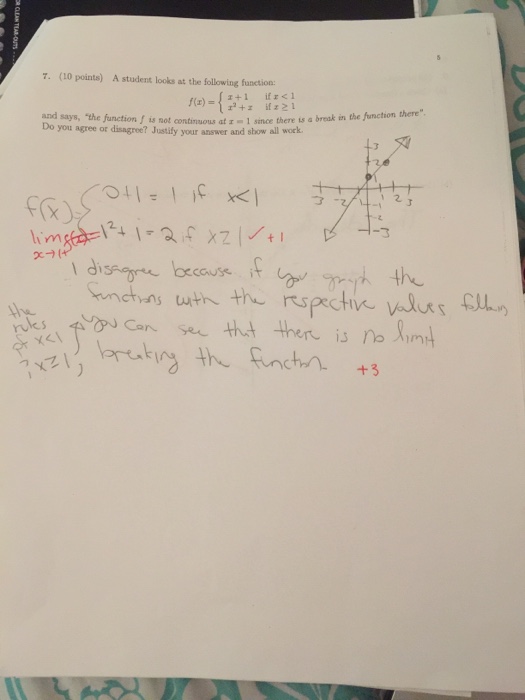 7. (10 points) A student looks at the following function:
f(x) = { x + 1 if x < 1
x² + x if x ≥ 1
and says, "the function f is not continuous at x = 1 since there is a break in the function there".
Do you agree or disagree? Justify your answer and show all work.
3
2
1
3 -2 -1 2 3
-2
-3
f(x) { 0+1 = 1 if x<1
lim = 1²+1=2 if x≥1 ✓ +1
x→1+
I disagree because if you graph the
functions with the respective values
the rules of x<1 ; x≥1, you can see that there is no limit
breaking the function +3